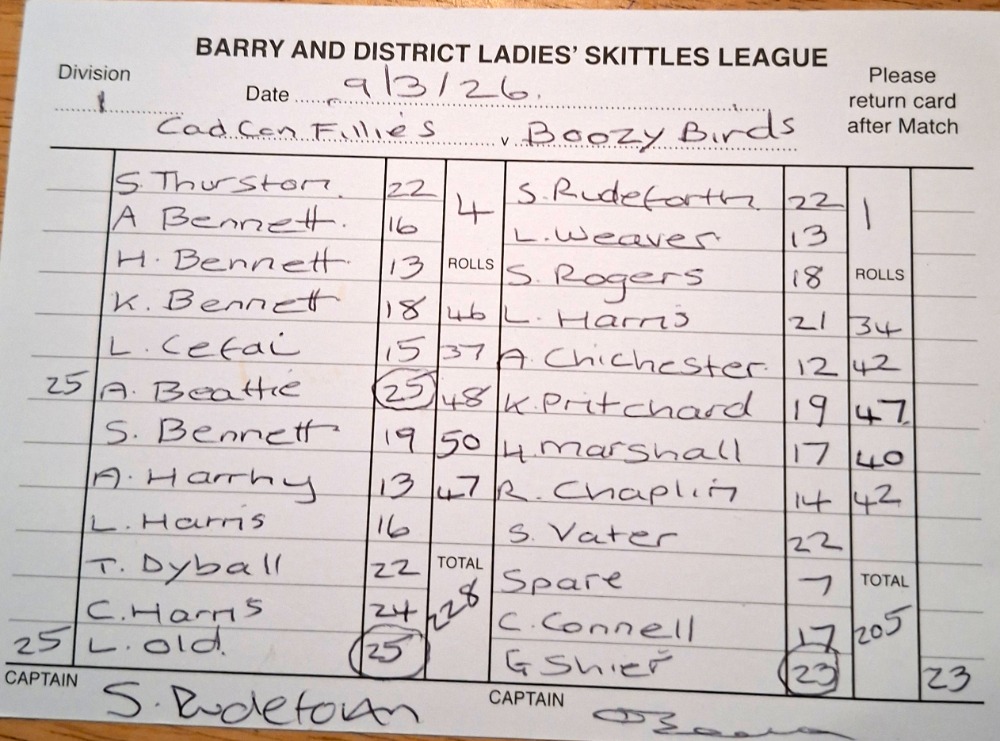 BARRY AND DISTRICT LADIES' SKITTLES LEAGUE
Division 1
Date 9/3/26.
Please return card after Match
Cad Cen Fillie's v Boozy Birds
S. Thurston 22 4 S. Rudeforth 22 1
A Bennett 16 L. Weaver 13
H. Bennett 13 ROLLS S. Rogers 18 ROLLS
K. Bennett 18 46 L. Harris 21 34
L. Cefai 15 37 A. Chichester 12 42
25 A. Beattie 25 48 K. Pritchard 19 47
S. Bennett 19 50 H. Marshall 17 40
A. Harrhy 13 47 R. Chaplin 14 42
L. Harris 16 S. Vater 22
T. Dyball 22 TOTAL Spare 7 TOTAL
C. Harris 24 228 C. Connell 17 205
25 L. Old. 25 G Shier 23 23
CAPTAIN S. CAPTAIN